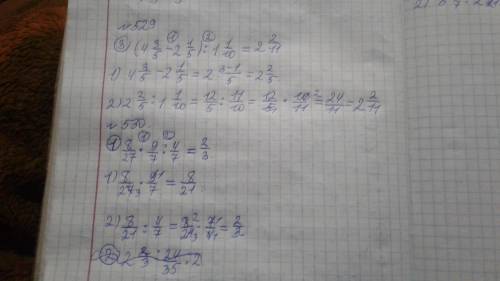 №529
③ (4 3/5 - 2 1/5) : 1 1/10 = 2 2/11
1) 4 3/5 - 2 1/5 = 2 3-1/5 = 2 2/5
2) 2 2/5 : 1 1/10 = 12/5 : 11/10 = 12/5 · 10/11 = 24/11 = 2 2/11
№530.
① 8/27 · 9/7 : 4/7 = 2/3
1) 8/27 · 9/7 = 8/21
2) 8/21 : 4/7 = 8/21 · 7/4 = 2/3
② 2 2/3 : 24/35 · 2